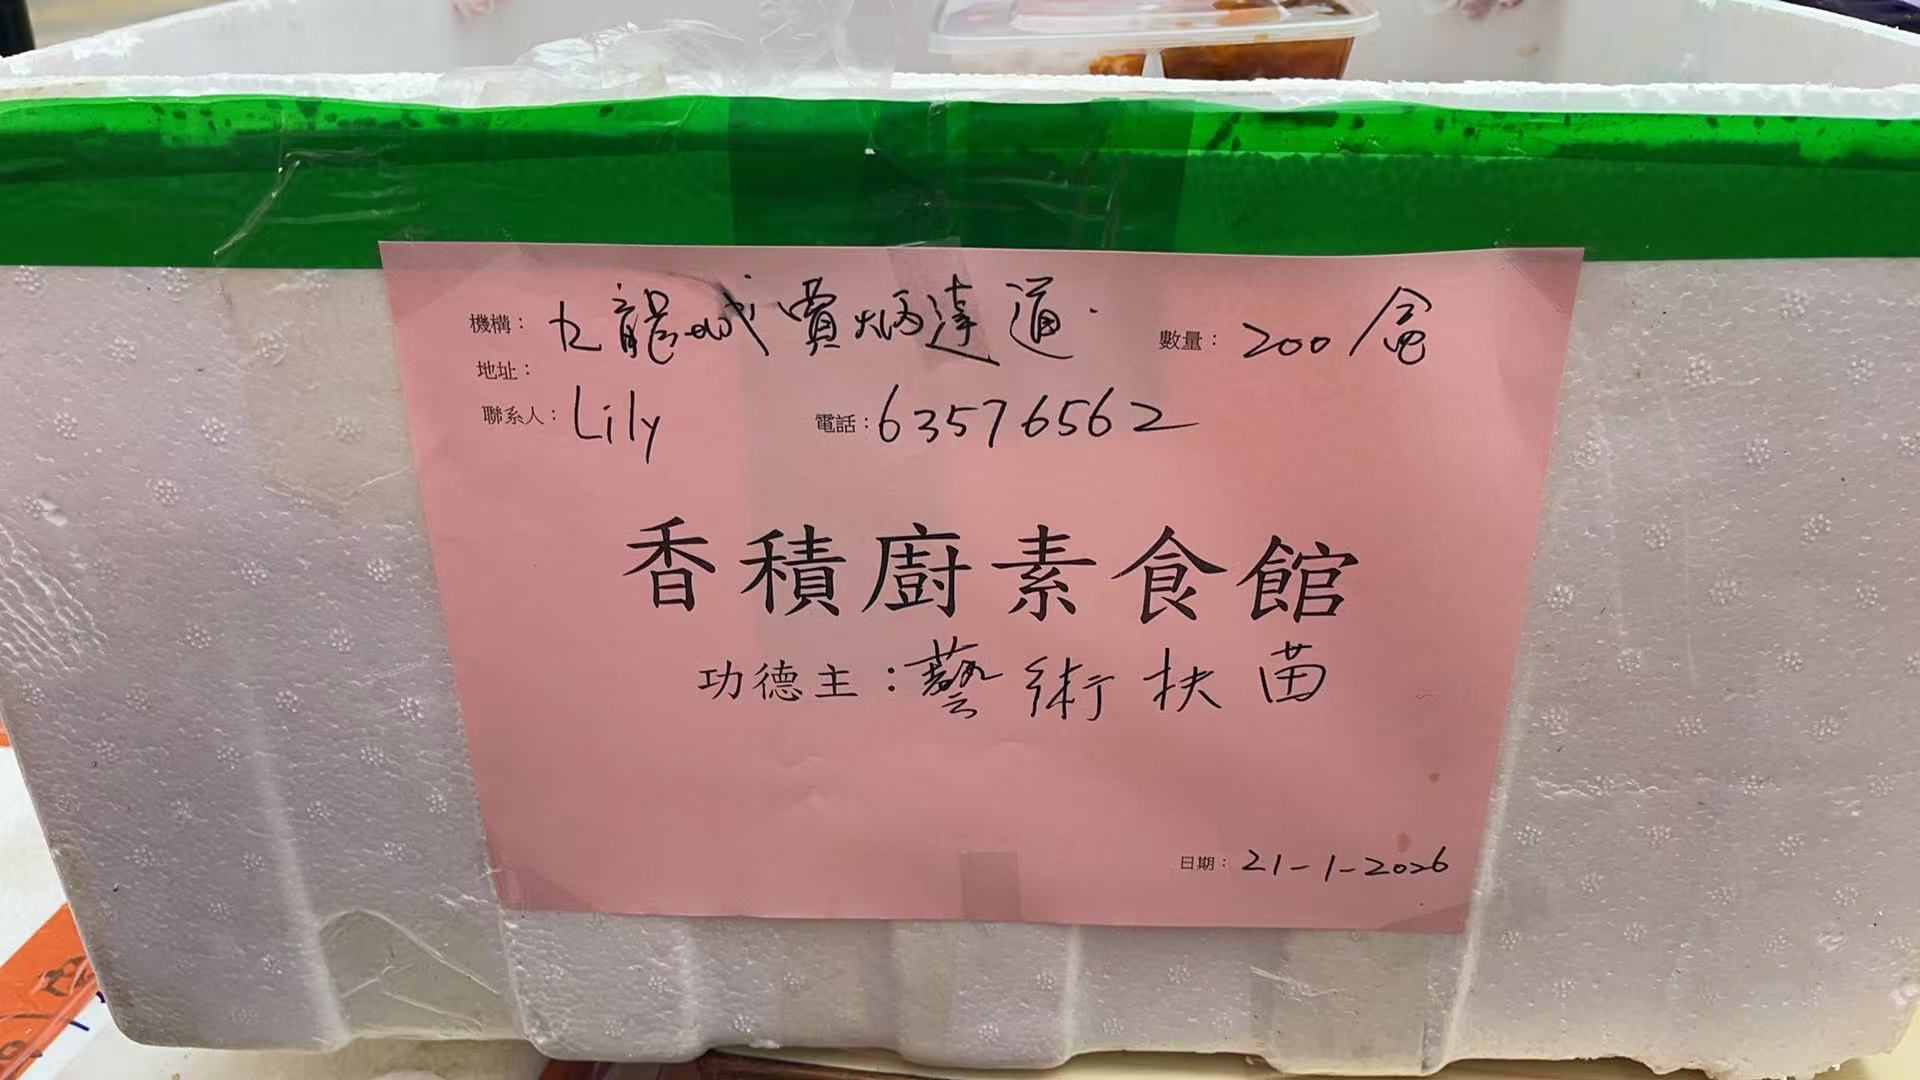 機構： 九龍城賈炳達道 數量： 200/盒
地址：
聯系人： Lily 電話： 63576562
香積廚素食館
功德主： 藝術扶苗
日期： 21-1-2026